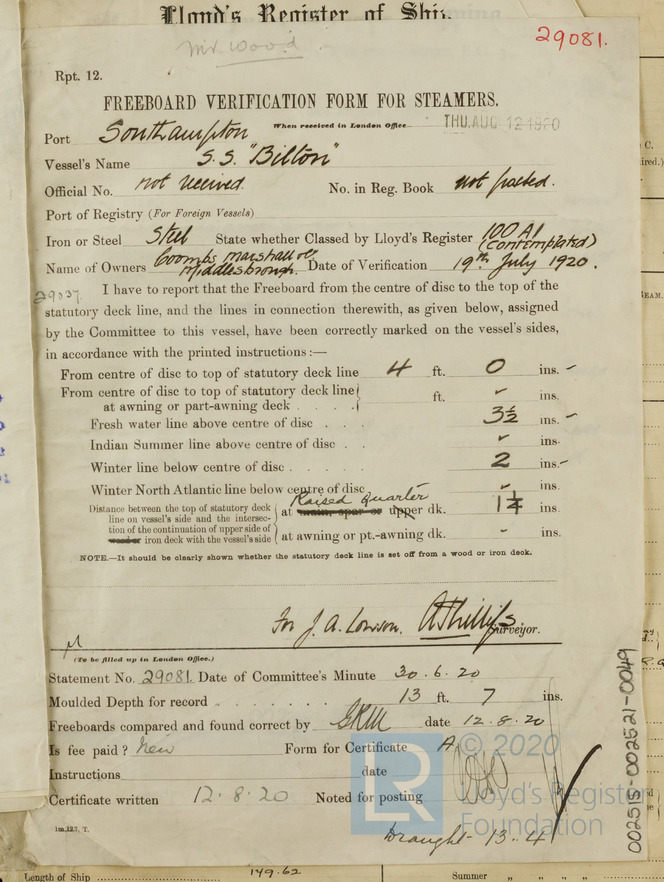 Lloyd's Register of Ship
Mr. Wood
29081.
Rpt. 12.
FREEBOARD VERIFICATION FORM FOR STEAMERS.
When received in London Office
THU. AUG 12 1920
Port Southampton
Vessel's Name S.S. "Bilton"
Official No. not received No. in Reg. Book not posted.
Port of Registry (For Foreign Vessels)
Iron or Steel Steel State whether Classed by Lloyd's Register 100 A1 (Contemplated)
Name of Owners Coombs Marshall & Co Middlesbrough. Date of Verification 19th July 1920.
29037
I have to report that the Freeboard from the centre of disc to the top of the
statutory deck line, and the lines in connection therewith, as given below, assigned
by the Committee to this vessel, have been correctly marked on the vessel's sides,
in accordance with the printed instructions :—
From centre of disc to top of statutory deck line 4 ft. 0 ins.
From centre of disc to top of statutory deck line
at awning or part-awning deck . . . . ft. ins.
Fresh water line above centre of disc . . . 3½ ins.
Indian Summer line above centre of disc . . ins.
Winter line below centre of disc . . . . . 2 ins.
Winter North Atlantic line below centre of disc ins.
Distance between the top of statutory deck
line on vessel's side and the intersec-
tion of the continuation of upper side of
wood or iron deck with the vessel's side
at Raised Quarter main, spar or upper dk. 1¼ ins.
at awning or pt.-awning dk. - ins.
NOTE.—It should be clearly shown whether the statutory deck line is set off from a wood or iron deck.
For J. A. Lowson. A Phillips
Surveyor.
(To be filled up in London Office.)
Statement No. 29081. Date of Committee's Minute 30.6.20
Moulded Depth for record 13 ft. 7 ins.
Freeboards compared and found correct by date 12.8.20
Is fee paid? New Form for Certificate A
Instructions date
Certificate written 12.8.20 Noted for posting
Draught - 13.4
1m,12,3, T.
© 2020
Lloyd's Register
Foundation
LR
002515-002521-0049
Length of Ship 149.62 Summer